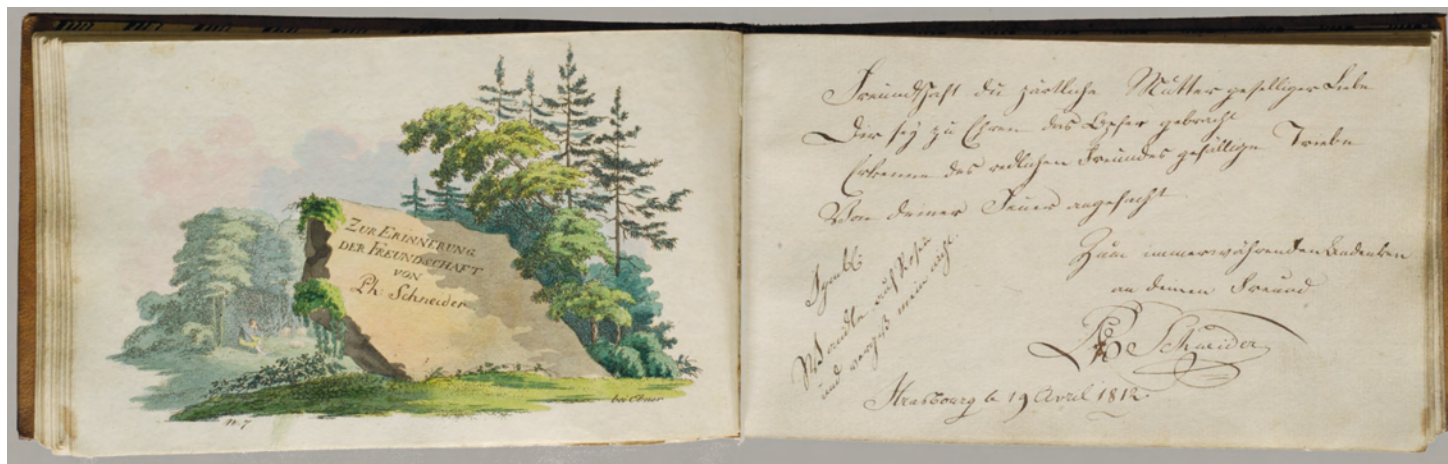 ZUR ERINNERUNG
DER FREUNDSCHAFT
VON
Ph: Schneider
N. 7
bei Ebner
Freundschaft du zärtliche Mutter geselliger Liebe
Dir sey zu Ehren das Opfer gebracht
Erkenne des redlichen Freundes gefällige Triebe
Von deiner Feuer angefacht
Symbl:
Wandle auf Rosen
und vergiß mein nicht.
Zum immerwährenden Andenken
an deinen Freund
Ph Schneider
Strasbourg le 19 Avril 1812.